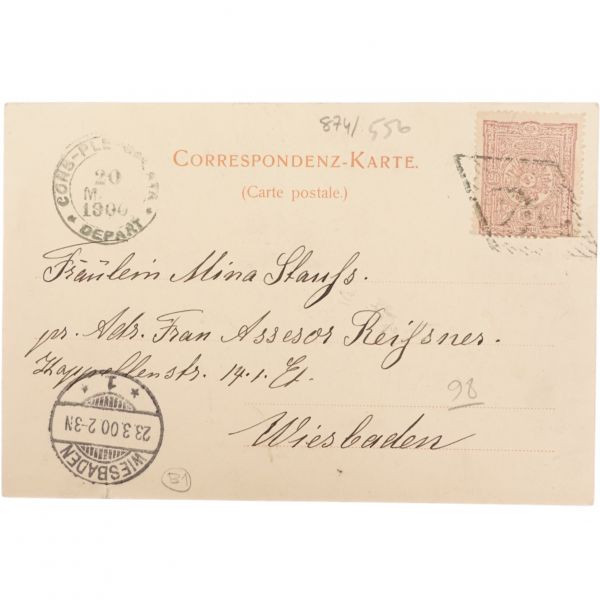 874/ 556
CORRESPONDENZ-KARTE.
(Carte postale.)
20
M
1900
* DEPART *
Fräulein Mina Stauss.
pr. Adr. Frau Assesor Reissner.
Kappellenstr. 14.1. Et.
98
Wiesbaden
* 1 *
23.3.00 2-3N
WIESBADEN
B1